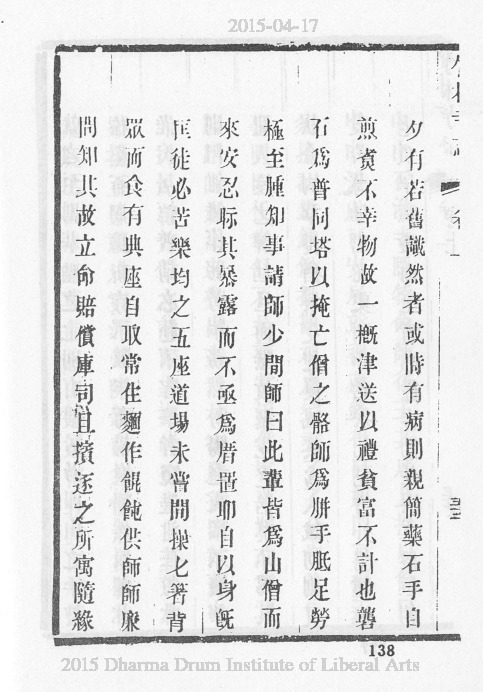 2015-04-17
夕有若舊識然者或時有病則親簡藥石手自
煎煑不幸物故一槪津送以禮貧富不計也礱
石爲普同塔以掩亡僧之骼師爲胼手胝足勞
極至腫知事請師少間師曰此輩皆爲山僧而
來安忍眎其暴露而不亟爲厝置耶自以身旣
匡徒必苦樂均之五座道場未嘗間操匕箸背
眾而食有典座自取常住麵作餛飩供師師廉
問知其故立命賠償庫司且擯逐之所寓隨緣
138
2015 Dharma Drum Institute of Liberal Arts